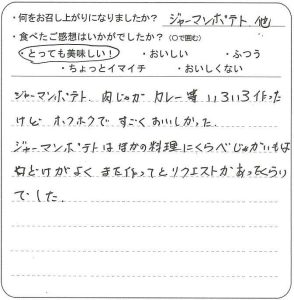 ・何をお召し上がりになりましたか？ ジャーマンポテト 他
・食べたご感想はいかがでしたか？（○で囲む）
・とっても美味しい！ ・おいしい ・ふつう
・ちょっとイマイチ ・おいしくない
ジャーマンポテト、肉じゃが カレー等 いろいろ作った
けど ホクホクで すごくおいしかった．
ジャーマンポテトは ほかの料理にくらべ じゃがいもは
口どけがよく また作ってとリクエストがあったくらい
でした．